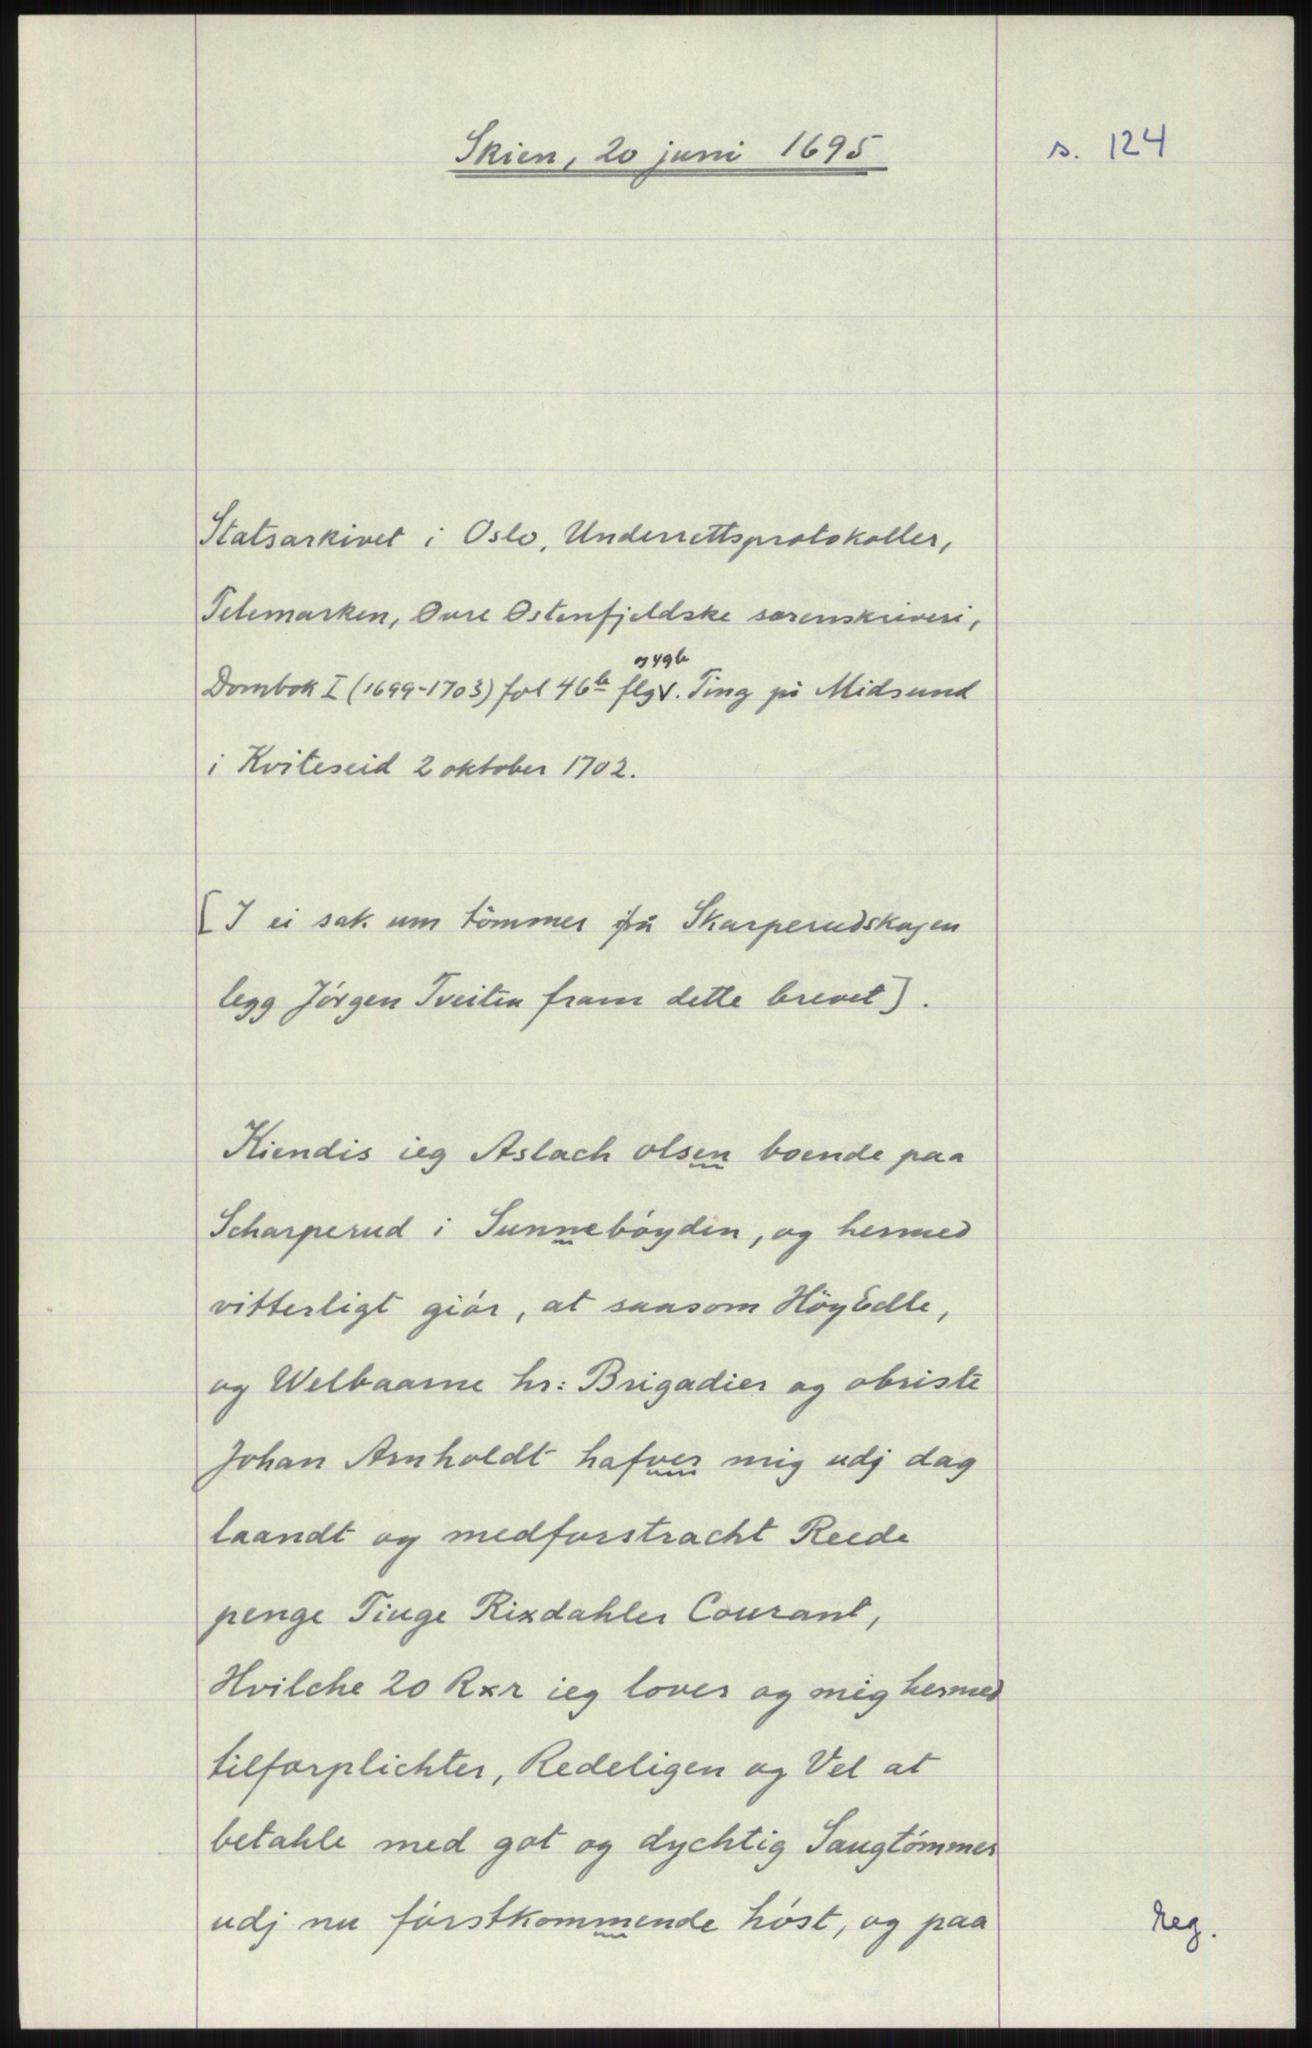 Skien, 20 juni 1695
s. 124
Statsarkivet i Oslo, Underrettsprotokoller,
Telemarken, Øvre Østenfjeldske sorenskriveri,
og 49b
Dombok I (1699-1703) fol 46b flg v. Ting på Midsund
i Kviteseid 2 oktober 1702.
[I ei sak um tömmer på Skarperudskogen
legg Jörgen Tveiten fram dette brevet].
Kiendis ieg Aslach olsen boende paa
Scharperud i Sunnebóyden, og hermed
vitterligt giór, at saasom HöyEdle,
og Welbaarne hr: Brigadier og obriste
Johan Arnholdt hafver mig udj dag
laandt og medforstracht Reede
penge Tiuge Rixdahler Courant,
Hvilche 20 Rxr ieg lover og mig hermed
tilforplichter, Redeligen og Vel at
betahle med got og dychtig Saugtómmer
udj nu fórstkommende hóst, og paa
reg.